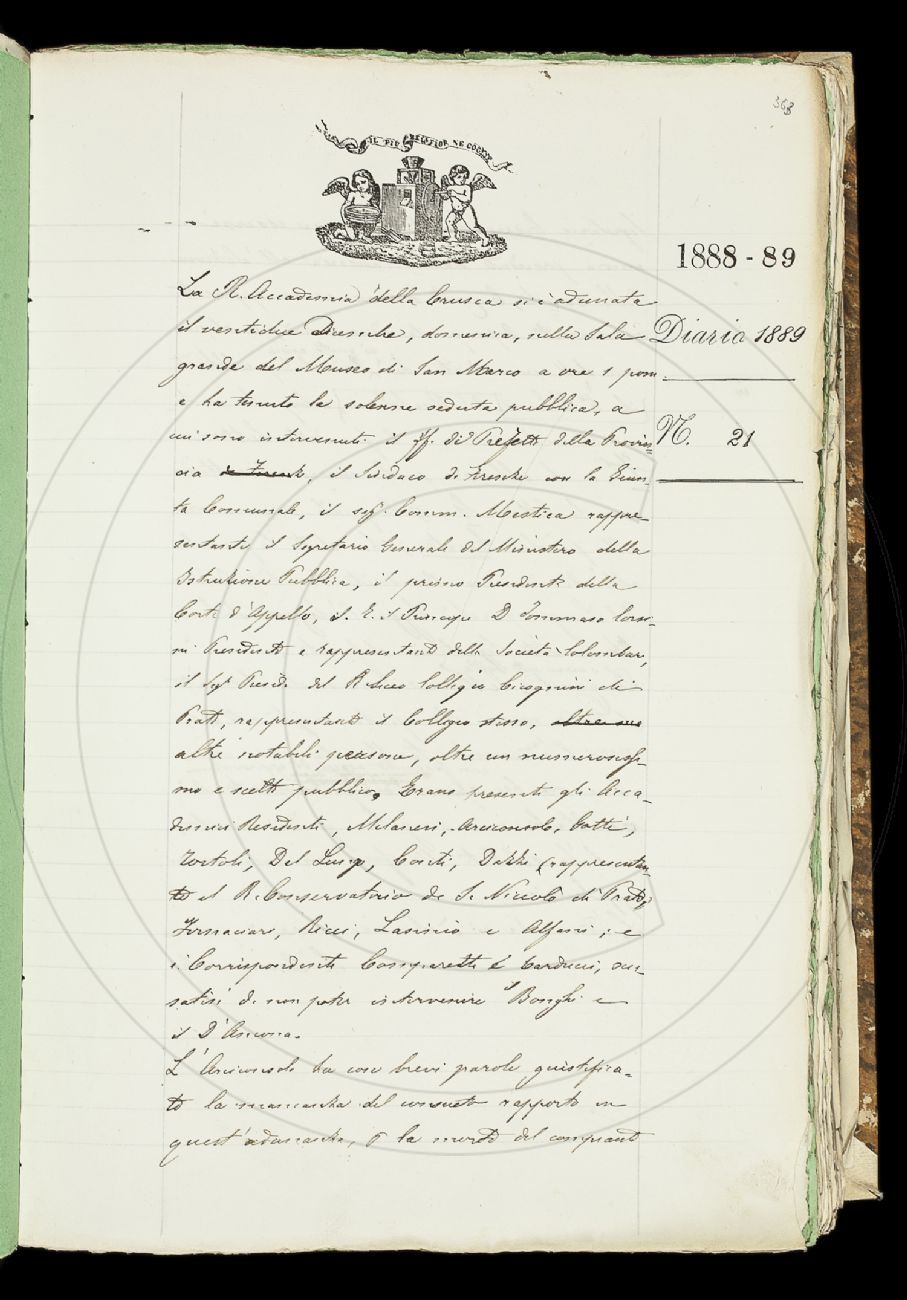 363
IL PIÙ BEL FIOR NE COGLIE
1888-89
Diario 1889
N. 21
La R. Accademia della Crusca si è adunata
il ventidue Dicembre, domenica, nella Sala
grande del Museo di San Marco a ore 1 pom.
e ha tenuto la solenne seduta pubblica, a
cui sono intervenuti il ff. di Prefetto della Provin=
cia di Firenze, il Sindaco di Firenze con la Giun-
ta Comunale, il sig. Comm. Mestica rappre-
sentante il Segretario Generale del Ministero della
Istruzione Pubblica, il primo Presidente della
Corte d'Appello, S. E. il Principe D Tommaso Corsi-
ni Presidente e rappresentante della Società Colombar,
il Sigr Preside del R Liceo Collegio Cicognini di
Prato, rappresentante il Collegio stesso, oltre
altre notabili persone, oltre un numerosissi-
mo e scelto pubblico. Erano presenti gli Acca-
demici Residenti, Milanesi, Arciconsolo, Cotti,
Tortoli, Del Lungo, Conti, Dazzi (rappresentan-
te il R. Conservatorio di S. Niccolò di Prato)
Fornaciari, Ricci, Lasinio e Alfani; e
i Corrispondenti Comparetti e Carducci, scu-
satisi di non poter intervenire il Bonghi e
il D'Ancona.
L'Arciconsolo ha con brevi parole giustifica-
to la mancanza del consueto rapporto in
quest'adunanza, per la morte del compianto